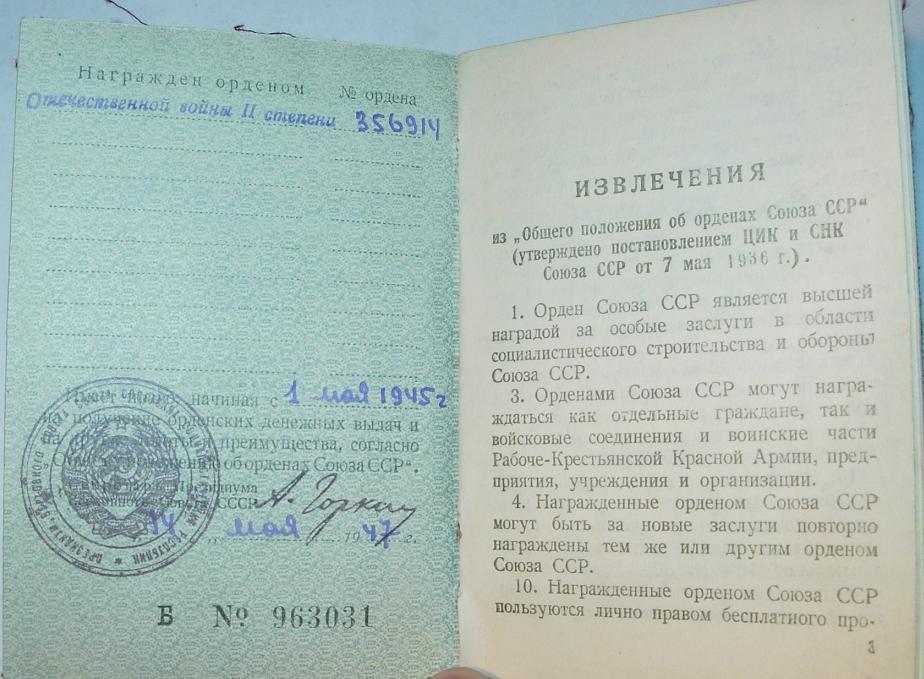 Награжден орденом № ордена
Отечественной войны II степени 356914
Имеет право, начиная с 1 мая 1945 г
на получение орденских денежных выдач и
другие льготы и преимущества, согласно
„Общему положению об орденах Союза ССР“.
Секретарь Президиума
Верховного Совета СССР А. Горкин
14 „ мая 1947 г.
Б № 963031
ИЗВЛЕЧЕНИЯ
из „Общего положения об орденах Союза ССР“
(утверждено постановлением ЦИК и СНК
Союза ССР от 7 мая 1936 г.).
1. Орден Союза ССР является высшей
наградой за особые заслуги в области
социалистического строительства и обороны
Союза ССР.
3. Орденами Союза ССР могут награ-
ждаться как отдельные граждане, так и
войсковые соединения и воинские части
Рабоче-Крестьянской Красной Армии, пред-
приятия, учреждения и организации.
4. Награжденные орденом Союза ССР
могут быть за новые заслуги повторно
награждены тем же или другим орденом
Союза ССР.
10. Награжденные орденом Союза ССР
пользуются лично правом бесплатного про-
3